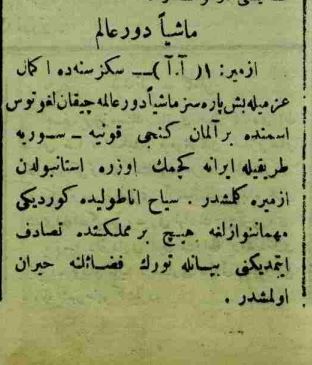 ماشیاً دور عالم
ازمیر: ١( آ.آ )ــ سكز سنه ده ا كمال
عزمیله بش پاره سز ماشیاً دور عالمه چیقان لغوتوس
اسمنده بر آلمان كنجی قونیه ــ سوریه
طریقیله ایرانه كچمك اوزره استانبولدن
ازمیره كلمشدر . سیاح اناطولیده كوردیكی
مهماننوازلغه هیچ بر مملكتده تصادف
ایتمدیكنی بیانله تورك فضائلنه حیران
اولمشدر .